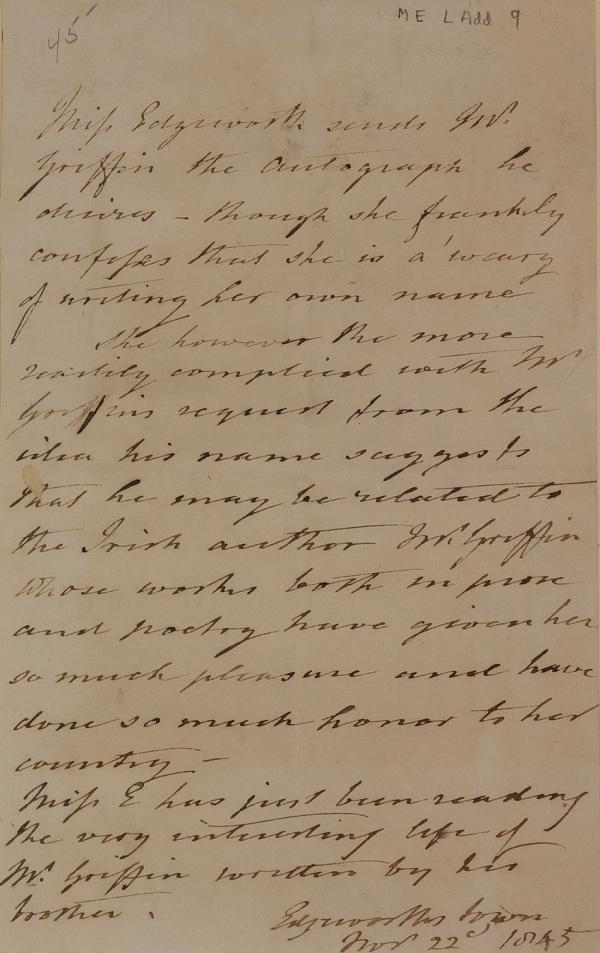 45
M E L Add 9
Miss Edgeworth sends Mr.
Griffin the autograph he
desires – though she frankly
confesses that she is a' weary
of writing her own name
She however the more
readily complied with Mr
Griffins request from the
idea his name suggests
that he may be related to
the Irish author Mr. Griffin
whose works both in prose
and poetry have given her
so much pleasure and have
done so much honor to her
country –
Miss E has just been reading
the very interesting life of
Mr. Griffin written by his
brother .
Edgeworths town
Novr 22d 1845